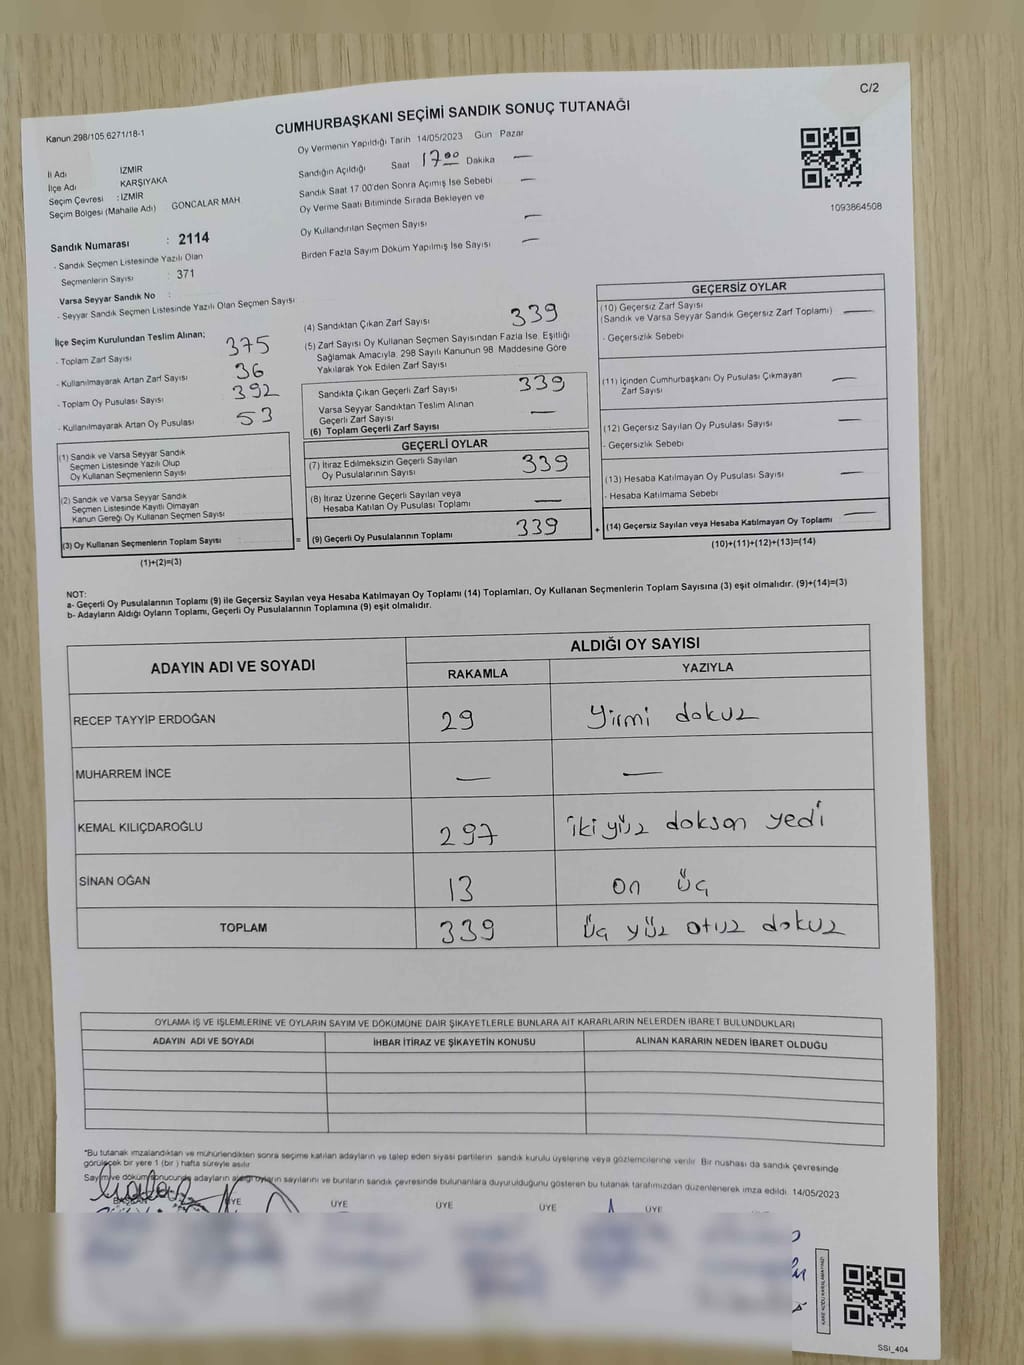 C/2
Kanun 298/105,6271/18-1
CUMHURBAŞKANI SEÇİMİ SANDIK SONUÇ TUTANAĞI
Oy Vermenin Yapıldığı Tarih 14/05/2023 Gün Pazar
İl Adı İZMİR
İlçe Adı KARŞIYAKA
Seçim Çevresi : İZMİR
Seçim Bölgesi (Mahalle Adı) GONCALAR MAH
Sandığın Açıldığı Saat 17.00 Dakika —
Sandık Saat 17 00'den Sonra Açımış İse Sebebi —
Oy Verme Saati Bitiminde Sırada Bekleyen ve
Oy Kullandırılan Seçmen Sayısı —
Birden Fazla Sayım Döküm Yapılmış İse Sayısı —
1093864508
Sandık Numarası : 2114
- Sandık Seçmen Listesinde Yazılı Olan
Seçmenlerin Sayısı : 371
Varsa Seyyar Sandık No :
- Seyyar Sandık Seçmen Listesinde Yazılı Olan Seçmen Sayısı
İlçe Seçim Kurulundan Teslim Alınan;
- Toplam Zarf Sayısı 375
- Kullanılmayarak Artan Zarf Sayısı 36
- Toplam Oy Pusulası Sayısı 392
- Kullanılmayarak Artan Oy Pusulası 53
(1) Sandık ve Varsa Seyyar Sandık
Seçmen Listesinde Yazılı Olup
Oy Kullanan Seçmenlerin Sayısı
(2) Sandık ve Varsa Seyyar Sandık
Seçmen Listesinde Kayıtlı Olmayan
Kanun Gereği Oy Kullanan Seçmen Sayısı
(3) Oy Kullanan Seçmenlerin Toplam Sayısı
(1)+(2)=(3)
=
(4) Sandıktan Çıkan Zarf Sayısı 339
(5) Zarf Sayısı Oy Kullanan Seçmen Sayısından Fazla İse, Eşitliği
Sağlamak Amacıyla, 298 Sayılı Kanunun 98. Maddesine Göre
Yakılarak Yok Edilen Zarf Sayısı
Sandıkta Çıkan Geçerli Zarf Sayısı 339
Varsa Seyyar Sandıktan Teslim Alınan
Geçerli Zarf Sayısı —
(6) Toplam Geçerli Zarf Sayısı
GEÇERLİ OYLAR
(7) İtiraz Edilmeksizin Geçerli Sayılan
Oy Pusulalarının Sayısı 339
(8) İtiraz Üzerine Geçerli Sayılan veya
Hesaba Katılan Oy Pusulası Toplamı —
(9) Geçerli Oy Pusulalarının Toplamı 339
+
GEÇERSİZ OYLAR
(10) Geçersiz Zarf Sayısı
(Sandık ve Varsa Seyyar Sandık Geçersiz Zarf Toplamı) —
- Geçersizlik Sebebi
(11) İçinden Cumhurbaşkanı Oy Pusulası Çıkmayan
Zarf Sayısı —
(12) Geçersiz Sayılan Oy Pusulası Sayısı —
- Geçersizlik Sebebi
(13) Hesaba Katılmayan Oy Pusulası Sayısı —
- Hesaba Katılmama Sebebi
(14) Geçersiz Sayılan veya Hesaba Katılmayan Oy Toplamı —
(10)+(11)+(12)+(13)=(14)
NOT:
a- Geçerli Oy Pusulalarının Toplamı (9) ile Geçersiz Sayılan veya Hesaba Katılmayan Oy Toplamı (14) Toplamları, Oy Kullanan Seçmenlerin Toplam Sayısına (3) eşit olmalıdır. (9)+(14)=(3)
b- Adayların Aldığı Oyların Toplamı, Geçerli Oy Pusulalarının Toplamına (9) eşit olmalıdır.
ADAYIN ADI VE SOYADI ALDIĞI OY SAYISI
RAKAMLA YAZIYLA
RECEP TAYYİP ERDOĞAN 29 Yirmi dokuz
MUHARREM İNCE — —
KEMAL KILIÇDAROĞLU 297 iki yüz doksan yedi
SİNAN OĞAN 13 on üç
TOPLAM 339 üç yüz otuz dokuz
OYLAMA İŞ VE İŞLEMLERİNE VE OYLARIN SAYIM VE DÖKÜMÜNE DAİR ŞİKAYETLERLE BUNLARA AİT KARARLARIN NELERDEN İBARET BULUNDUKLARI
ADAYIN ADI VE SOYADI İHBAR İTİRAZ VE ŞİKAYETİN KONUSU ALINAN KARARIN NEDEN İBARET OLDUĞU
*Bu tutanak imzalandıktan ve mühürlendikten sonra seçime katılan adayların ve talep eden siyasi partilerin sandık kurulu üyelerine veya gözlemcilerine verilir. Bir nüshası da sandık çevresinde
görülecek bir yere 1 (bir) hafta süreyle asılır.
Sayım ve döküm sonucunda adayların aldığı oyların sayılarını ve bunların sandık çevresinde bulunanlara duyurulduğunu gösteren bu tutanak tarafımızdan düzenlenerek imza edildi. 14/05/2023
BAŞKAN ÜYE ÜYE ÜYE ÜYE ÜYE
SSİ_404